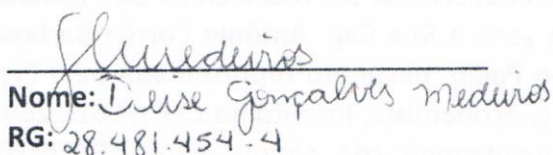 Nome: Deise Gonçalves Medeiros
RG: 28.481.454-4